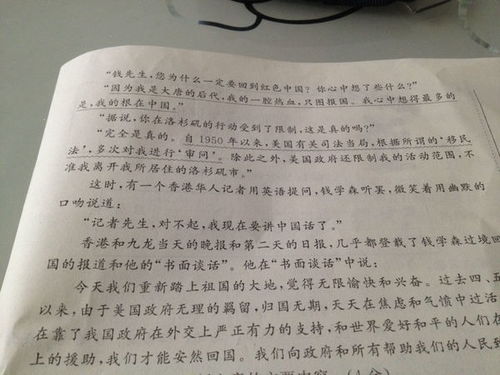 “钱先生,您为什么一定要回到红色中国?你心中想了些什么?”
“因为我是大唐的后代,我的一腔热血,只图报国。我心中想得最多的
是,我的根在中国。”
“据说,你在洛杉矶的行动受到了限制,这是真的吗?”
“完全是真的。自1950年以来,美国有关司法当局,根据所谓的‘移民
法’,多次对我进行‘审问’。除此之外,美国政府还限制我的活动范围,不
准我离开我所居住的洛杉矶市。”
这时,有一个香港华人记者用英语提问,钱学森听罢,微笑着用幽默的
口吻说道:
“记者先生,对不起,我现在要讲中国话了。”
香港和九龙当天的晚报和第二天的日报,几乎都登载了钱学森过境回
国的报道和他的“书面谈话”。他在“书面谈话”中说:
今天我们重新踏上祖国的大地,觉得无限愉快和兴奋。过去四、五
以来,由于美国政府无理的羁留,归国无期,天天在焦虑和气愤中过活
在靠了我国政府在外交上严正有力的支持,和世界爱好和平的人们在
上的援助,我们才能安然回国。我们向政府和所有帮助我们的人民致